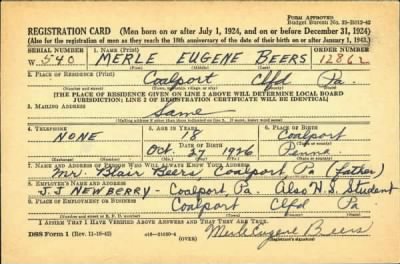 FORM APPROVED
Budget Bureau No. 33-R012-42
REGISTRATION CARD (Men born on or after July 1, 1924, and on or before December 31, 1924)
(Also for the registration of men as they reach the 18th anniversary of the date of their birth on or after January 1, 1943.)
SERIAL NUMBER 1. NAME (Print) ORDER NUMBER
W 540 MERLE EUGENE BEERS 12862
(First) (Middle) (Last)
2. PLACE OF RESIDENCE (Print)
Coalport Clfd Pa.
[THE PLACE OF RESIDENCE GIVEN ON LINE 2 ABOVE WILL DETERMINE LOCAL BOARD
JURISDICTION; LINE 2 OF REGISTRATION CERTIFICATE WILL BE IDENTICAL]
3. MAILING ADDRESS
Same
[Mailing address if other than place indicated on line 2. If same, insert word same]
4. TELEPHONE 5. AGE IN YEARS 6. PLACE OF BIRTH
NONE 18 Coalport
DATE OF BIRTH
Oct. 27 1926 Penna.
7. NAME AND ADDRESS OF PERSON WHO WILL ALWAYS KNOW YOUR ADDRESS
Mr. Blair Beers Coalport, Pa (father)
8. EMPLOYER'S NAME AND ADDRESS
J. J. NEWBERRY - Coalport, Pa. Also H.S. Student
9. PLACE OF EMPLOYMENT OR BUSINESS
Coalport Clfd Pa
I AFFIRM THAT I HAVE VERIFIED ABOVE ANSWERS AND THAT THEY ARE TRUE.
DSS Form 1 (Rev. 11-16-42) (OVER) Merle Eugene Beers
(Registrant's signature)